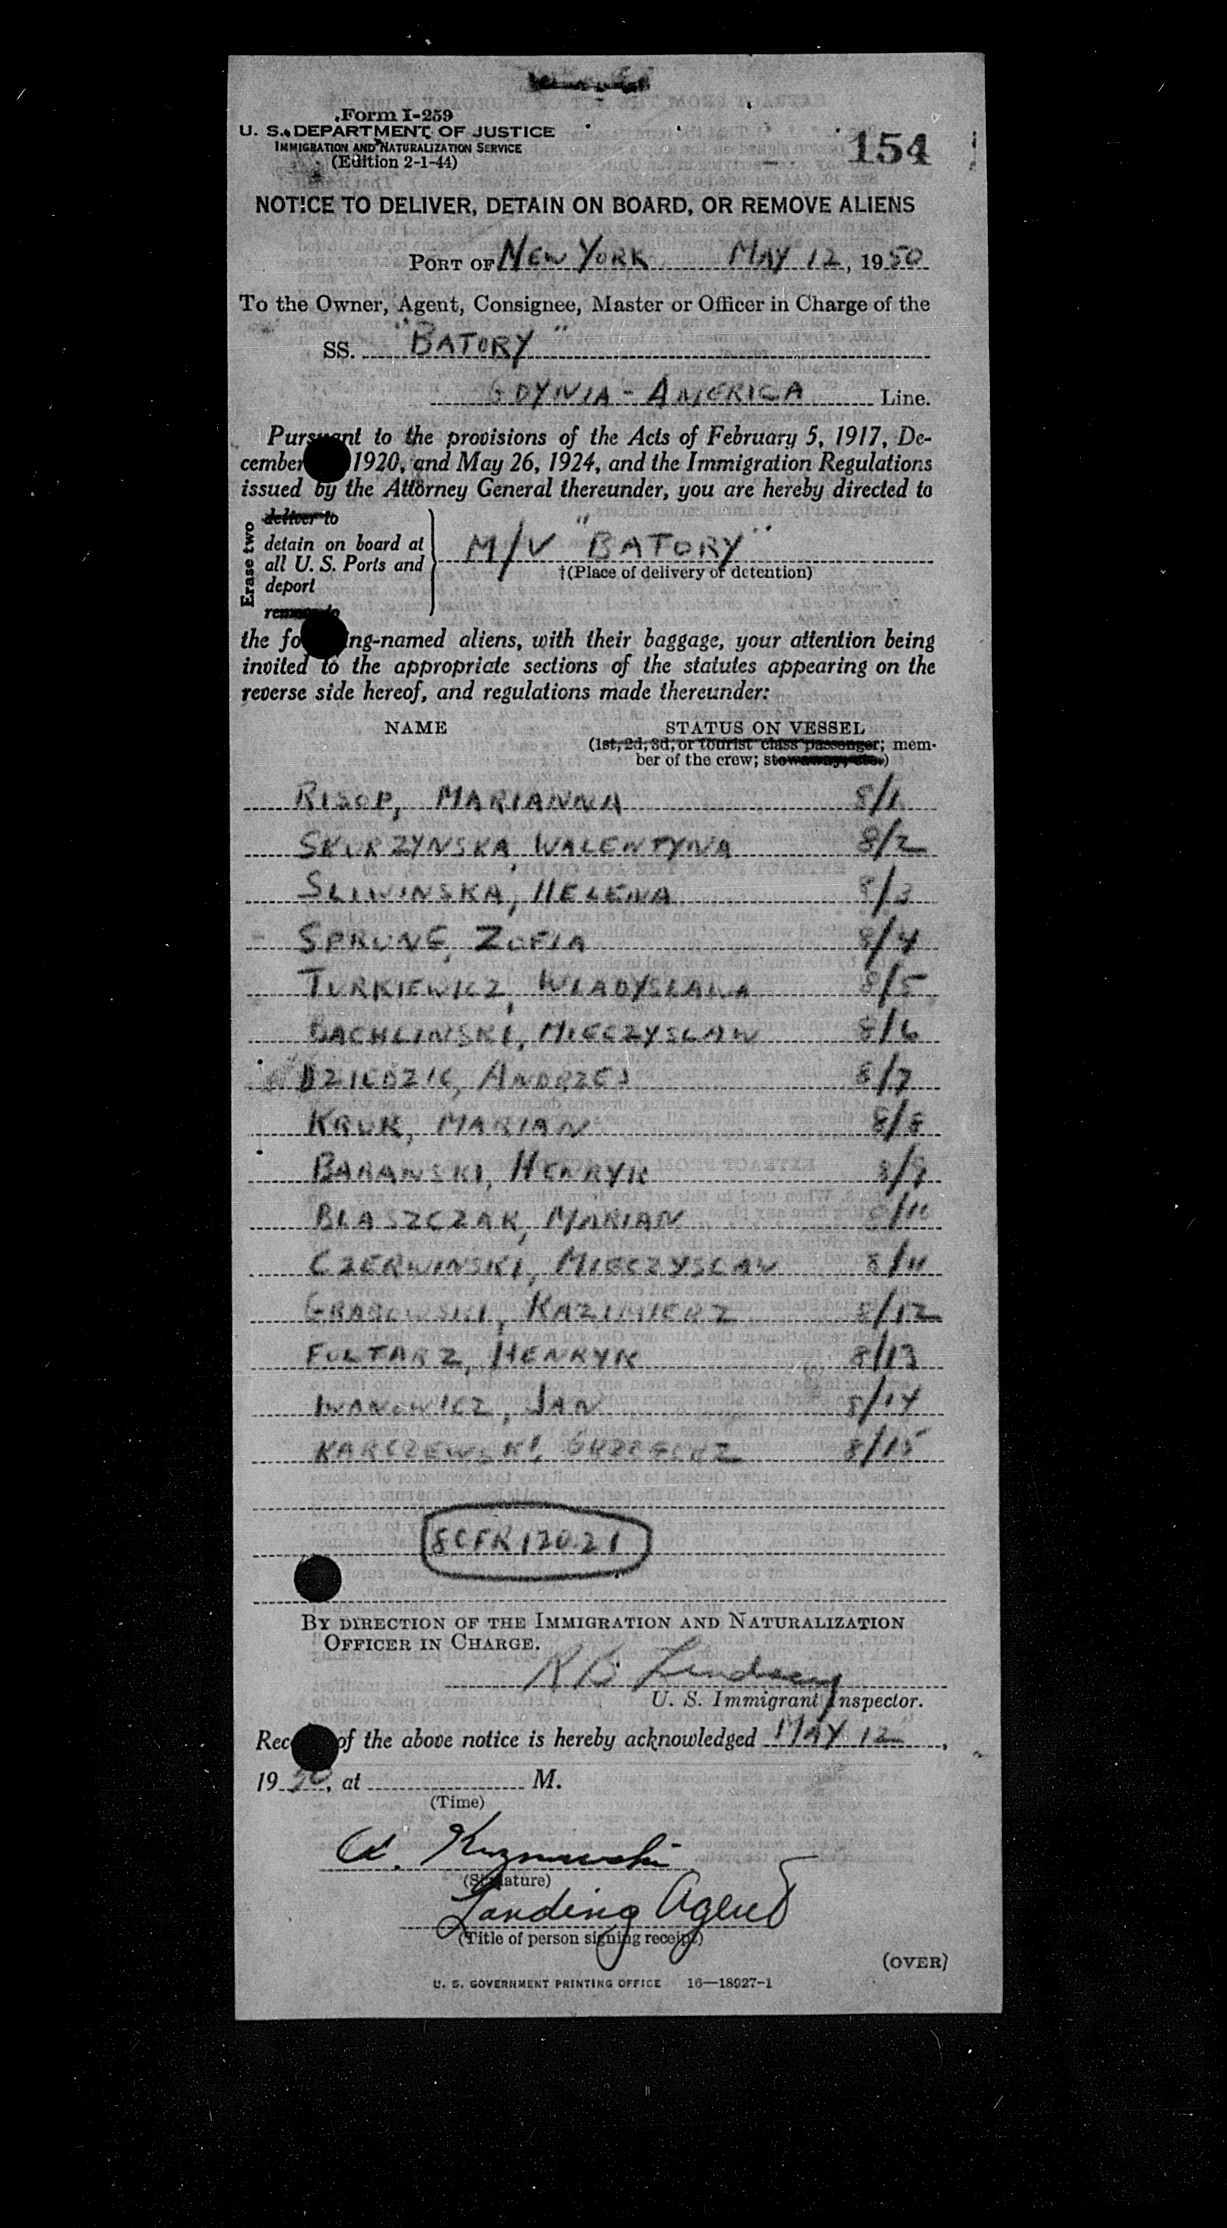 Form I-259
U. S. DEPARTMENT OF JUSTICE
IMMIGRATION AND NATURALIZATION SERVICE
(Edition 2-1-44)
154
NOTICE TO DELIVER, DETAIN ON BOARD, OR REMOVE ALIENS
PORT OF NEW YORK MAY 12, 1950
To the Owner, Agent, Consignee, Master or Officer in Charge of the
SS. "BATORY"
GDYNIA - AMERICA Line.
Pursuant to the provisions of the Acts of February 5, 1917, De-
cember 1920, and May 26, 1924, and the Immigration Regulations
issued by the Attorney General thereunder, you are hereby directed to
Erase two
deliver to
detain on board at
all U. S. Ports and
deport
remove to
M/V "BATORY"
†(Place of delivery or detention)
the following-named aliens, with their baggage, your attention being
invited to the appropriate sections of the statutes appearing on the
reverse side hereof, and regulations made thereunder:
NAME STATUS ON VESSEL
(1st, 2d, 3d, or tourist class passenger; mem-
ber of the crew; stowaway, etc.)
RISOP, MARIANNA 8/1
SKURZYNSKA WALENTYNA 8/2
SLIWINSKA, HELENA 8/3
SPRUNG, ZOFIA 8/4
TURKIEWICZ, WLADYSLAWA 8/5
BACHLINSKI, MIECZYSLAW 8/6
DZIEDZIC, ANDRZEJ 8/7
KRUK, MARIAN 8/8
BARANSKI, HENRYK 8/9
BLASZCZAK, MARIAN 8/10
CZERWINSKI, MIECZYSLAW 8/11
GRABOWSKI, KAZIMIERZ 8/12
FULTARZ, HENRYK 8/13
IWANOWICZ, JAN 8/14
KARCZEWSKI, GRZEGORZ 8/15
8CFR120.21
BY DIRECTION OF THE IMMIGRATION AND NATURALIZATION
OFFICER IN CHARGE.
R B Lindsay
U. S. Immigrant Inspector.
Rec of the above notice is hereby acknowledged MAY 12,
1950, at M.
(Time)
(Signature)
Landing Agent
(Title of person signing receipt)
(OVER)
U. S. GOVERNMENT PRINTING OFFICE 16—18927-1